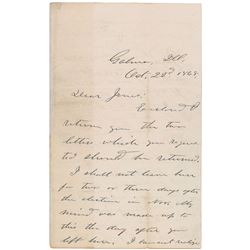 Galena, Ill.
Oct. 23d 1868.
Dear Jones:
Enclosed I
return you the two
letters which you requested
should be returned.
I shall not leave here
for two or three days after
the election in Nov. My
mind was made up to
this the day after you
left here. I cannot